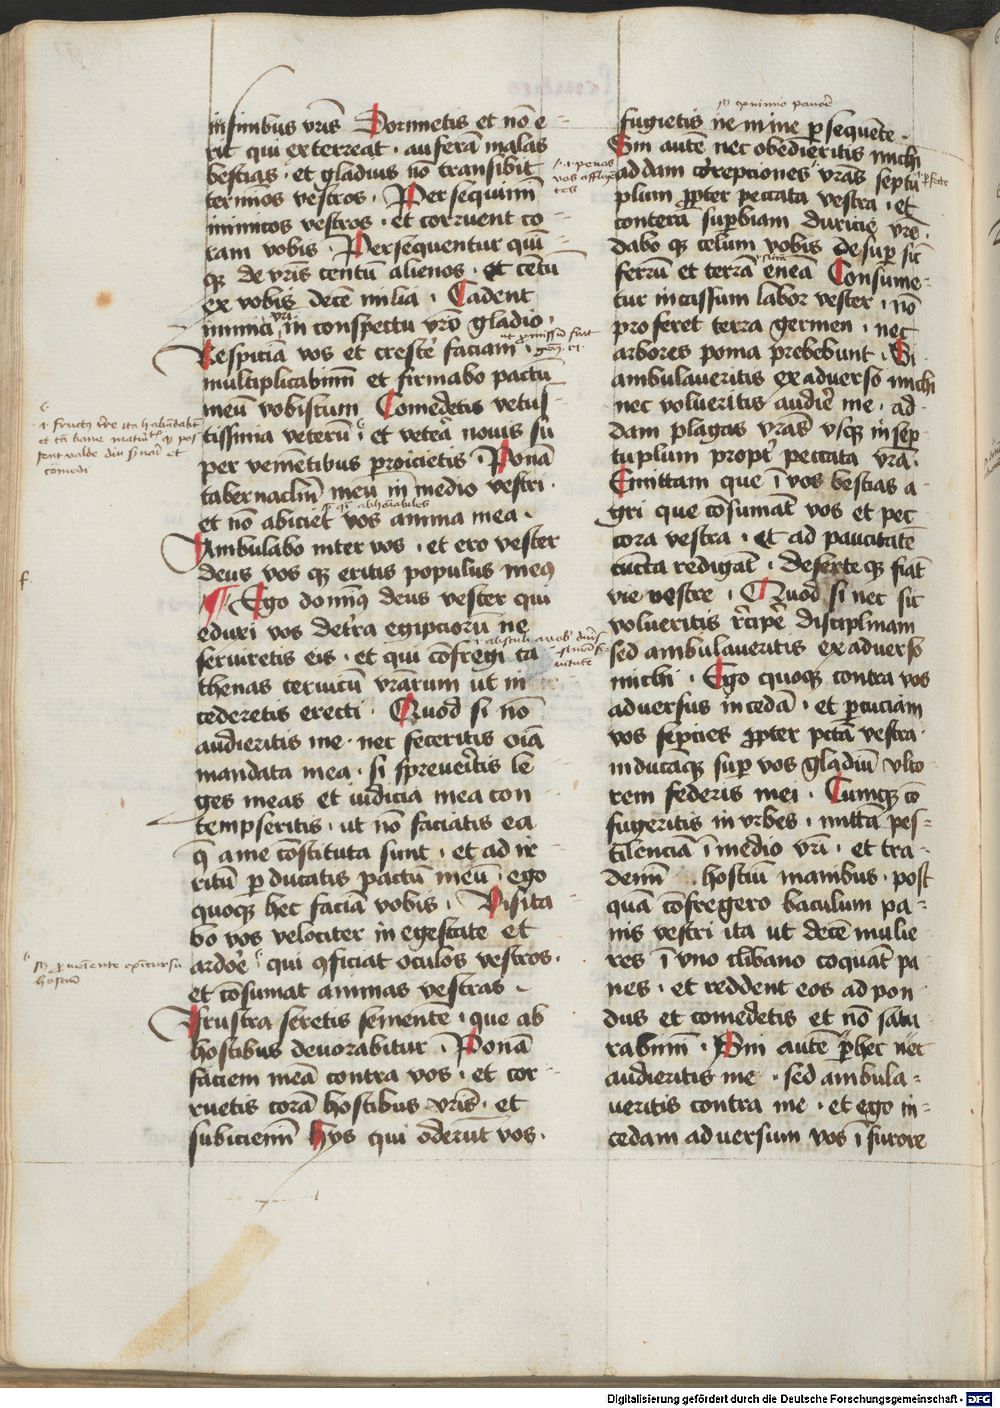 in finibus vr̄is Dormietis et nō e
rit qui exterreat · auferā malas
bestias · et gladius nō transibit
terminos vestros · Persequimī
inimicos vestros · et corruent co
ram vobis · Persequentur quīn
qꝫ de vr̄is centū alienos · et cētū
ex vobis decē milia · Cadent
inimici vr̄i in conspectu vr̄o gladio ·
Respiciā vos et crescere faciam ·
multiplicabimī et firmabo pactū
meū vobiscum Comedetis vetus
tissima veterū · et vetera nouis su
per venientibus proicietis Ponā
tabernaclm̄ meu in medio vestri ·
et nō abiciet vos anima mea ·
Ambulabo inter vos · et ero vester
deus vos qꝫ eritis populus meꝰ
Ego dominꝰ deus vester qui
eduxi vos de terra egipciorū ne
seruiretis eis · et qui cōfregi ca
thenas ceruicū vr̄arum ut in
cederetis erecti · Quod si nō
audieritis me · nec feceritis oīa
mandata mea · si spreueritis le
ges meas et iudicia mea con
tempseritis · ut nō faciatis ea
q̄ a me cōstituta sunt · et ad ir
ritū perducatis pactū meū · ego
quoqꝫ hec faciā vobis · Visita
bo vos velociter in egestate et
ardore qui ꝯficiat oculos vestros ·
et cōsumat animas vestras ·
Frustra seretis semente · que ab
hostibus deuorabitur · Ponā
faciem meā contra vos · et cor
ruetis corā hostibus vr̄is · et
subiciemī hys qui oderūt vos ·
fugietis nemine persequēte ·
Sin autē nec obedieritis michi
addam correpciones vr̄as septu
plum propter peccata vestra · et
conterā superbiam duricie vr̄e ·
dabo qꝫ celum vobis desuper sic̄
ferrū et terrā eneā Consume
tur incassum labor vester · nō
proferet terra germen · nec
arbores poma prebebunt · Si
ambulaueritis ex aduerso michi
nec volueritis audire me · ad
dam plagas vr̄as vsqꝫ in sep
tuplum propter peccata vr̄a ·
Emittam que ī vos bestias a
gri que cōsumāt vos et pec
cora vestra · et ad paucitatē
cūcta redigāt · deserte qꝫ fiāt
vie vestre · Quod si nec sic
volueritis recipere disciplinam
sed ambulaueritis ex aduerso
michi · Ego quoqꝫ contra vos
aduersus incedā · et percuciam
vos septies propter pctā vestra ·
inducāqꝫ super vos gladiū vlto
rem federis mei · Cumqꝫ cō
fugeritis in vrbes · mittā pes
tilenciā ī medio vr̄i · et tra
demī hostiū manibus · post
quā cōfregero baculum pa
nis vestri ita ut decē mulie
res ī vno clibano coquāt pa
nes · et reddent eos ad pon
dus et comedetis et nō satu
rabimī · Sin autē per hec nec
audieritis me · sed ambula
ueritis contra me · et ego in
cedam aduersum vos ī furore
Digitalisierung gefördert durch die Deutsche Forschungsgemeinschaft - DFG